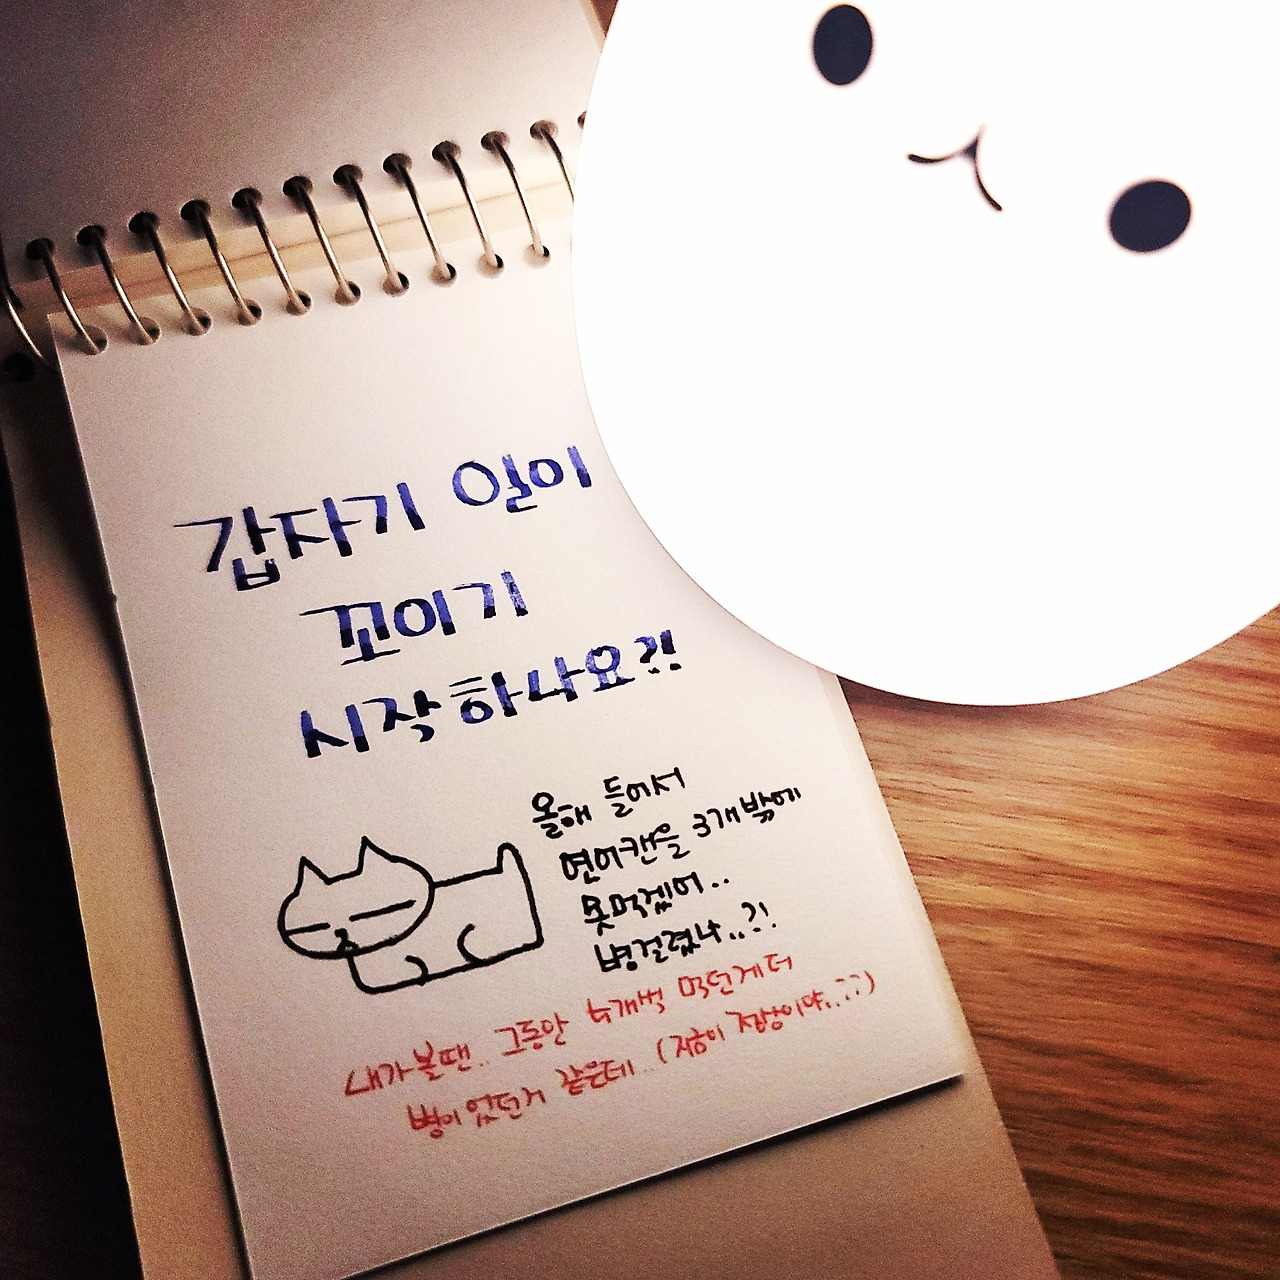 갑자기 일이
꼬이기
시작하나요?!
올해 들어서
연어캔을 3개밖에
못먹겠어..
병걸렸나..?!
내가볼땐.. 그동안 4개씩 먹던게 더
병이었던거 같은데.. (지금이 정상이야..;;)